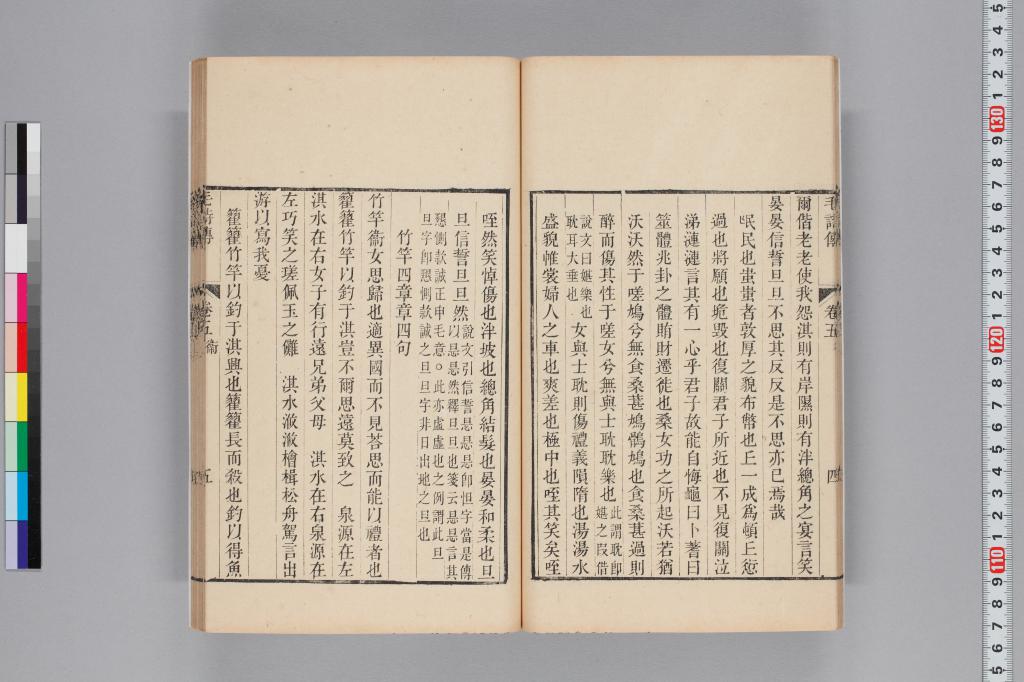 毛詩傳 卷五 四
爾偕老老使我怨淇則有岸隰則有泮總角之宴言笑
晏晏信誓旦旦不思其反反是不思亦已焉哉
氓民也蚩蚩者敦厚之貌布幣也丘一成爲頓丘愆
過也將願也垝毀也復關君子所近也不見復關泣
涕漣漣言其有一心乎君子故能自悔龜曰卜蓍曰
筮體兆卦之體賄財遷徙也桑女功之所起沃若猶
沃沃然于嗟鳩兮無食桑葚鳩鶻鳩也食桑葚過則
醉而傷其性于嗟女兮無與士耽耽樂也此謂耽卽媅之叚借
說文曰媅樂也耽耳大垂也女與士耽則傷禮義隕隋也湯湯水
盛貌帷裳婦人之車也爽差也極中也咥其笑矣咥
咥然笑悼傷也泮坡也總角結髮也晏晏和柔也旦
旦信誓旦旦然說文引信誓悬悬悬卽怛字當是傳以悬悬然釋旦旦也箋云悬悬言其
懇惻款誠正申毛意○此亦虛虛也之例謂此旦旦字卽懇惻款誠之旦旦字非日出地之旦也
竹竿四章章四句
竹竿衞女思歸也適異國而不見荅思而能以禮者也
籊籊竹竿以釣于淇豈不爾思遠莫致之 泉源在左
淇水在右女子有行遠兄弟父母 淇水在右泉源在
左巧笑之瑳佩玉之儺 淇水滺滺檜楫松舟駕言出
游以寫我憂
籊籊竹竿以釣于淇興也籊籊長而殺也釣以得魚
毛詩傳 卷五 衞 五